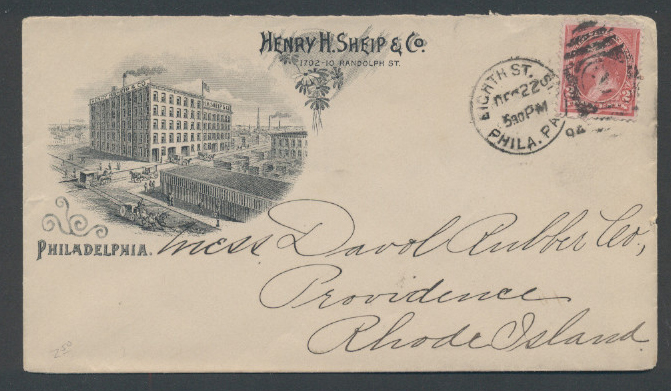 HENRY H. SHEIP & Co.
1702-10 RANDOLPH ST.
EIGHTH ST. ST
DEC 22
530 PM
94
PHILA. PA
PHILADELPHIA.
Mess Davol Rubber Co,
Providence
Rhode Island.
250